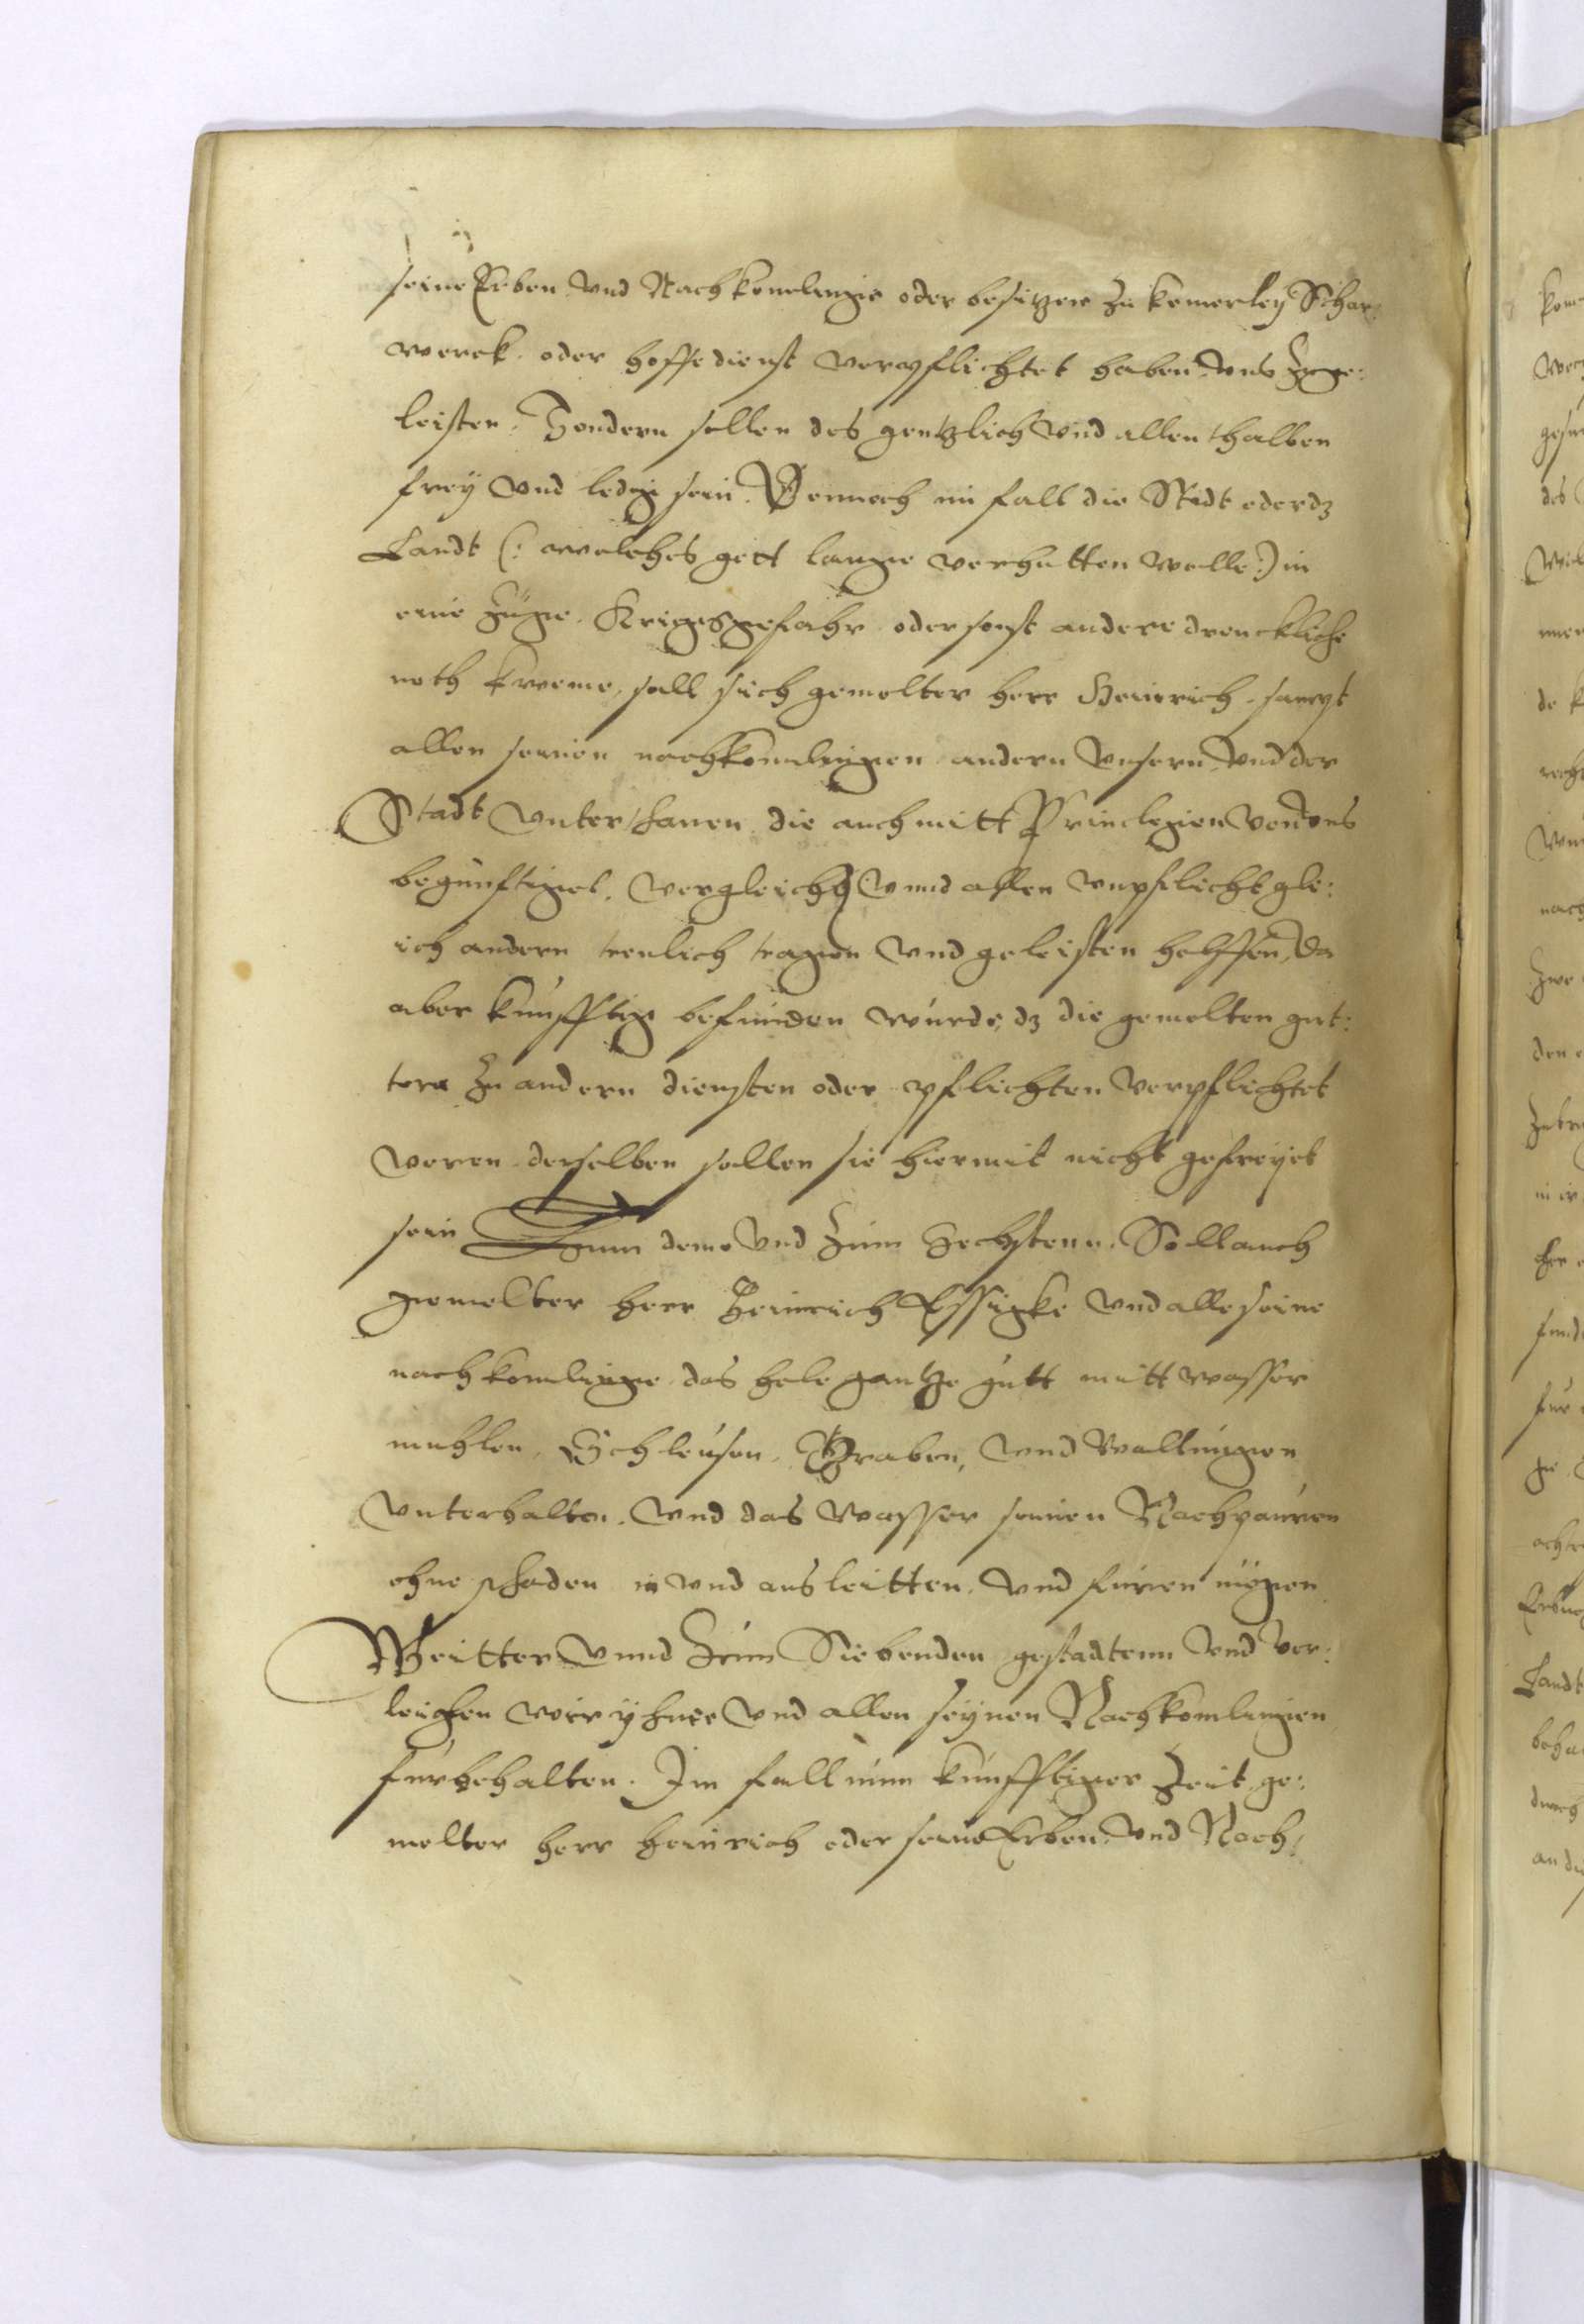 seine Erben und Nachkomlinge oder besitzer zu kemerley Schar:
werck oder hoffedienst verpflichtet haben uns zuge:
leisten. Sondern sollen des gentzlich und allenthalben
frey und ledig sein. Dennoch im fall die Stadt oder dz
Landt (: welches gott lange verhutten wolle :) in
eine Züge. Kriegsgefahr oder sonst andere drenckliche
noth kweme, soll sich gemelter herr Heinrich sampt
allen seinen nachkomlingen andern unsern und der
Stadt unterthanen die auch mitt Privilegien von uns
begünstiget. vergleichen unnd allen unpflicht gle:
ich andern treulich tragen und geleisten helffen, da
aber kunfftig befunden wurde, dz die gemelten gut:
tere zu andern diensten oder pflichten verpflichtet
weren derselben sollen sie hiermit nicht gefreyet
sein Zum deme und zum Sechstenn. Soll auch
gemelter herr Heinrich Essigke und alle seine
nachkomlinge das hele gantze gutt mitt wasser
muhlen, Schleusen, Graben, und wallungen
unterhalten. und das wasser seinen Nachpauren
ohne schaden in und ausleitten, und furen mögen
Weitter unnd Zum Siebenden gestadtenn und ver:
leighen wir yhme und allen seynen Nachkomlingen
furbehalten. Im fall nun kunfftiger Zeit ge:
melter herr heinrich oder seine Erben und Nach: